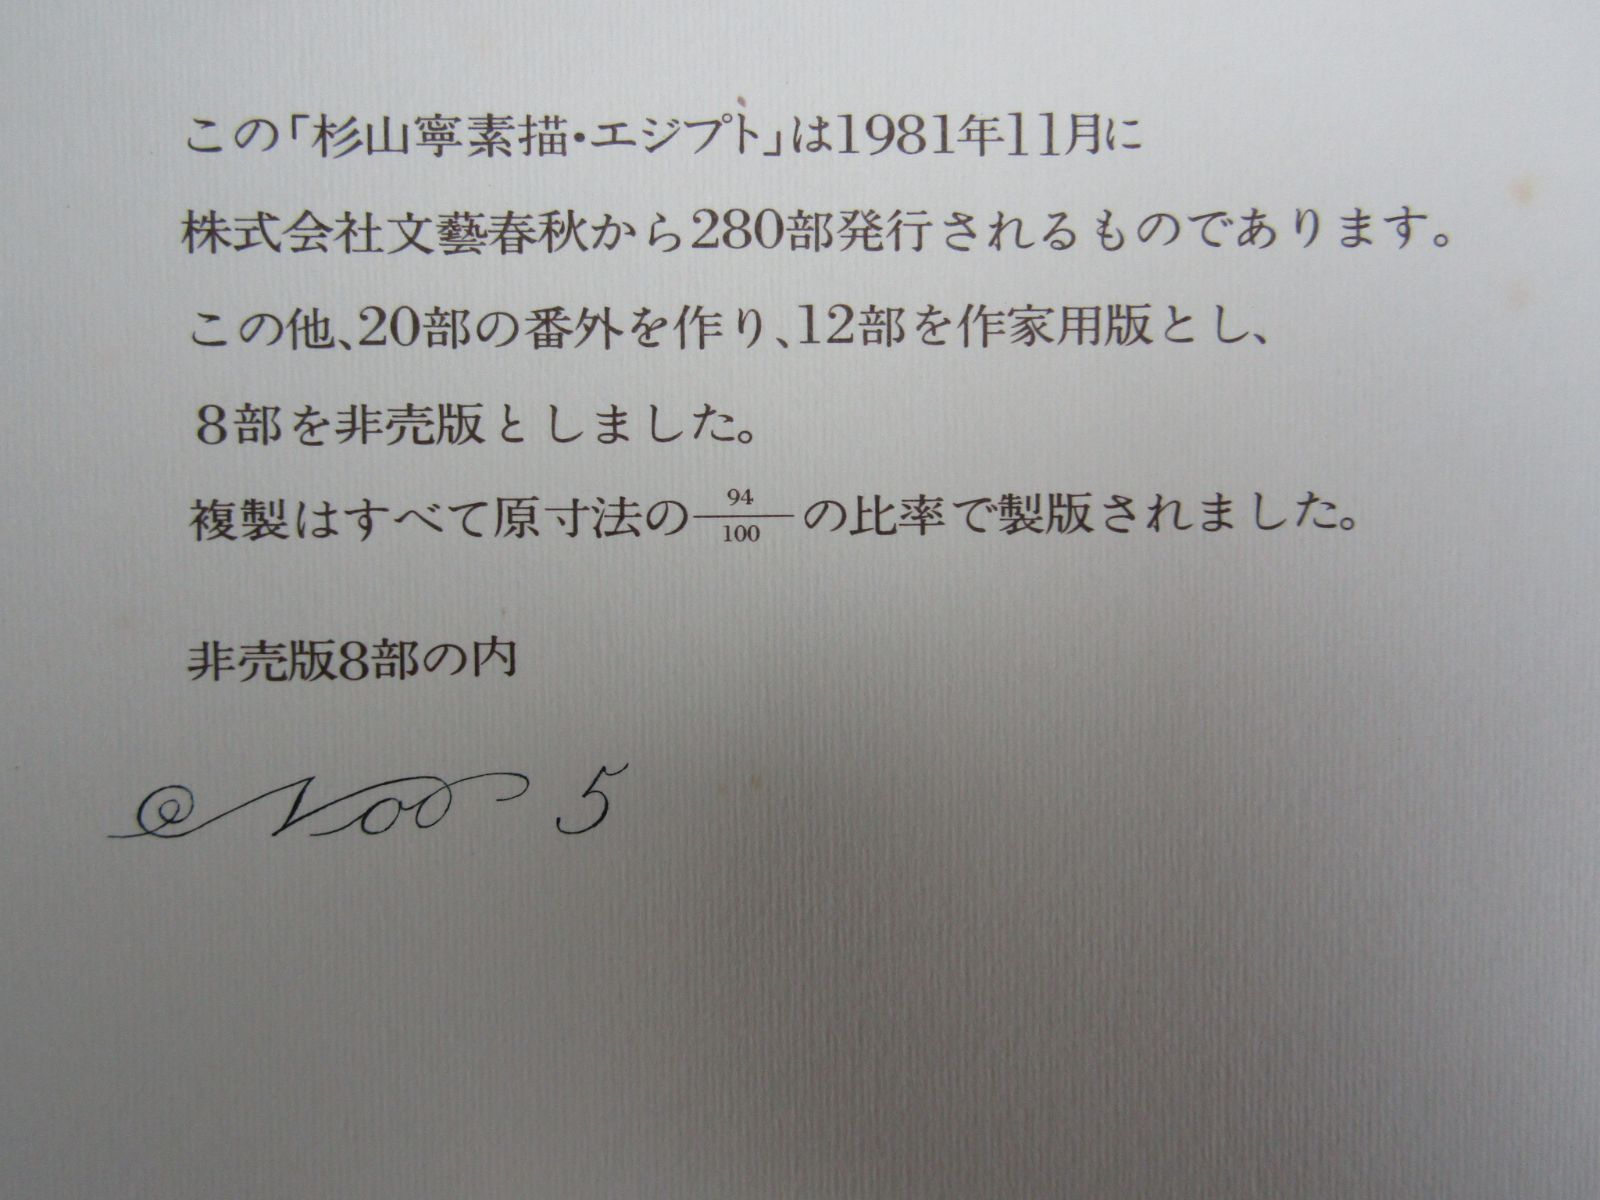 この「杉山寧素描・エジプト」は1981年11月に
株式会社文藝春秋から280部発行されるものであります。
この他、20部の番外を作り、12部を作家用版とし、
8部を非売版としました。
複製はすべて原寸法の94/100の比率で製版されました。
非売版8部の内
No 5